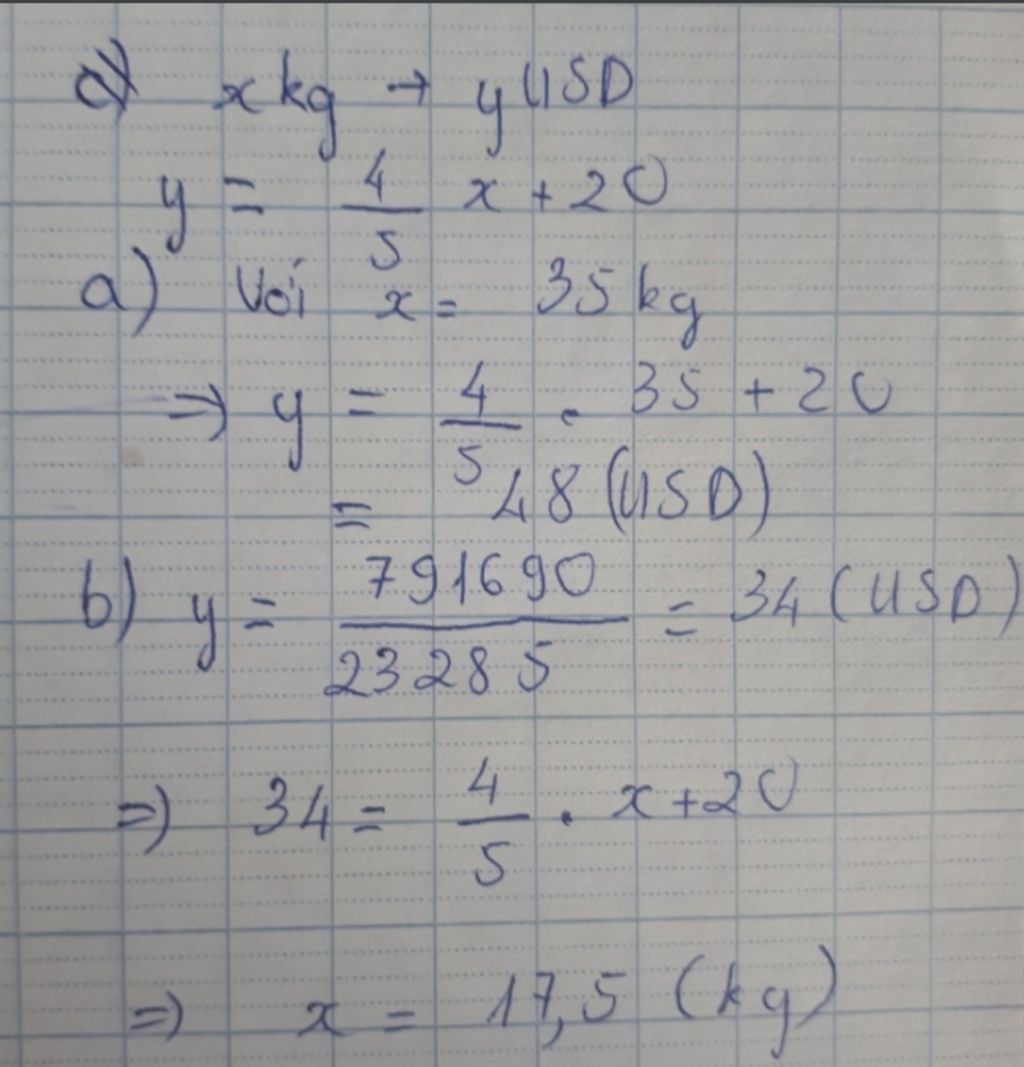 a) x kg → y USD
y = 4/5 x + 20
a) Với x = 35 kg
⇒ y = 4/5 . 35 + 20
= 48 (USD)
b) y = 791690/23285 = 34 (USD)
⇒ 34 = 4/5 . x + 20
⇒ x = 17,5 (kg)